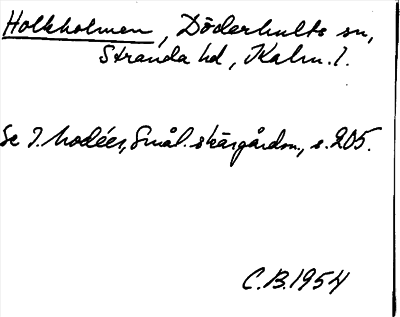 Holkholmen, Döderhults sn,
Stranda hd, Kalm. l.
Se I. Modéer, Smål. skärgårdsn., s. 205.
C.B. 1954